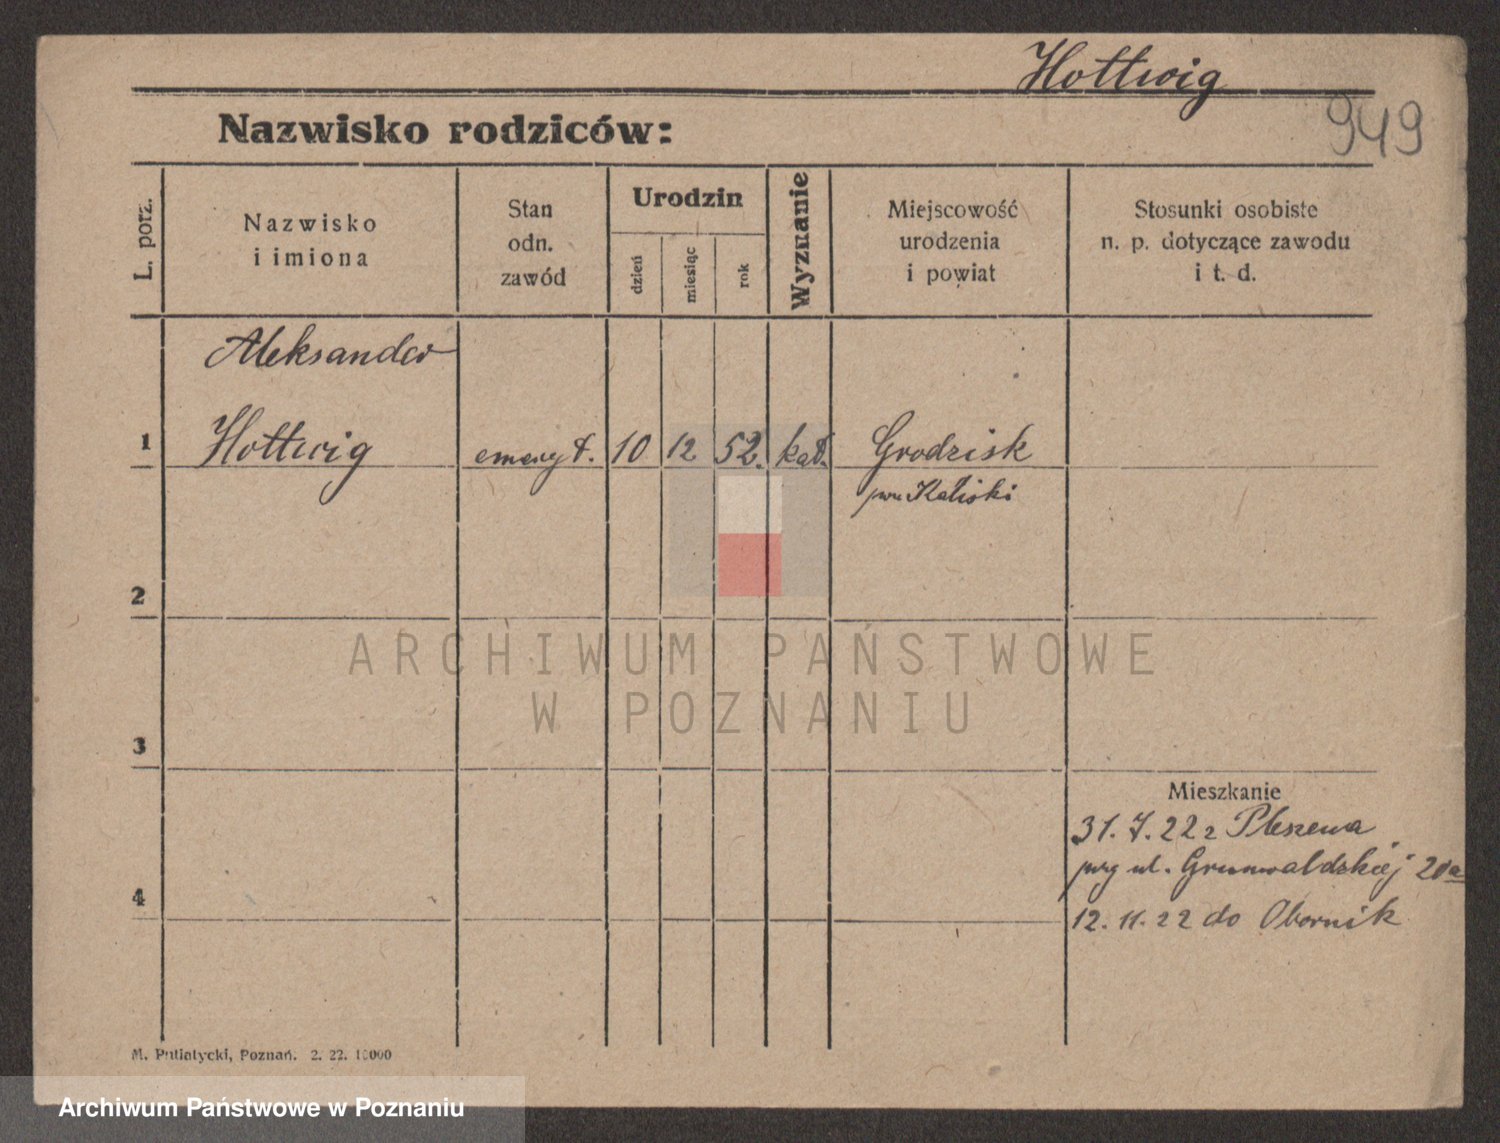 Hottwig
949
Nazwisko rodziców:
L. porz.
Nazwisko
i imiona
Stan
odn.
zawód
Urodzin
dzień
miesiąc
rok
Wyznanie
Miejscowość
urodzenia
i powiat
Stosunki osobiste
n. p. dotyczące zawodu
i t. d.
Aleksander
1 Hottwig emeryt. 10 12 52. kat. Grodzisk
pow. Kaliski
2
ARCHIWUM PAŃSTWOWE
W POZNANIU
3
Mieszkanie
31. 7. 22 z Pleszewa
przy ul. Grunwaldzkiej 20a
4
12. 11. 22 do Obornik
M. Putiatycki, Poznań. 2. 22. 10000
Archiwum Państwowe w Poznaniu